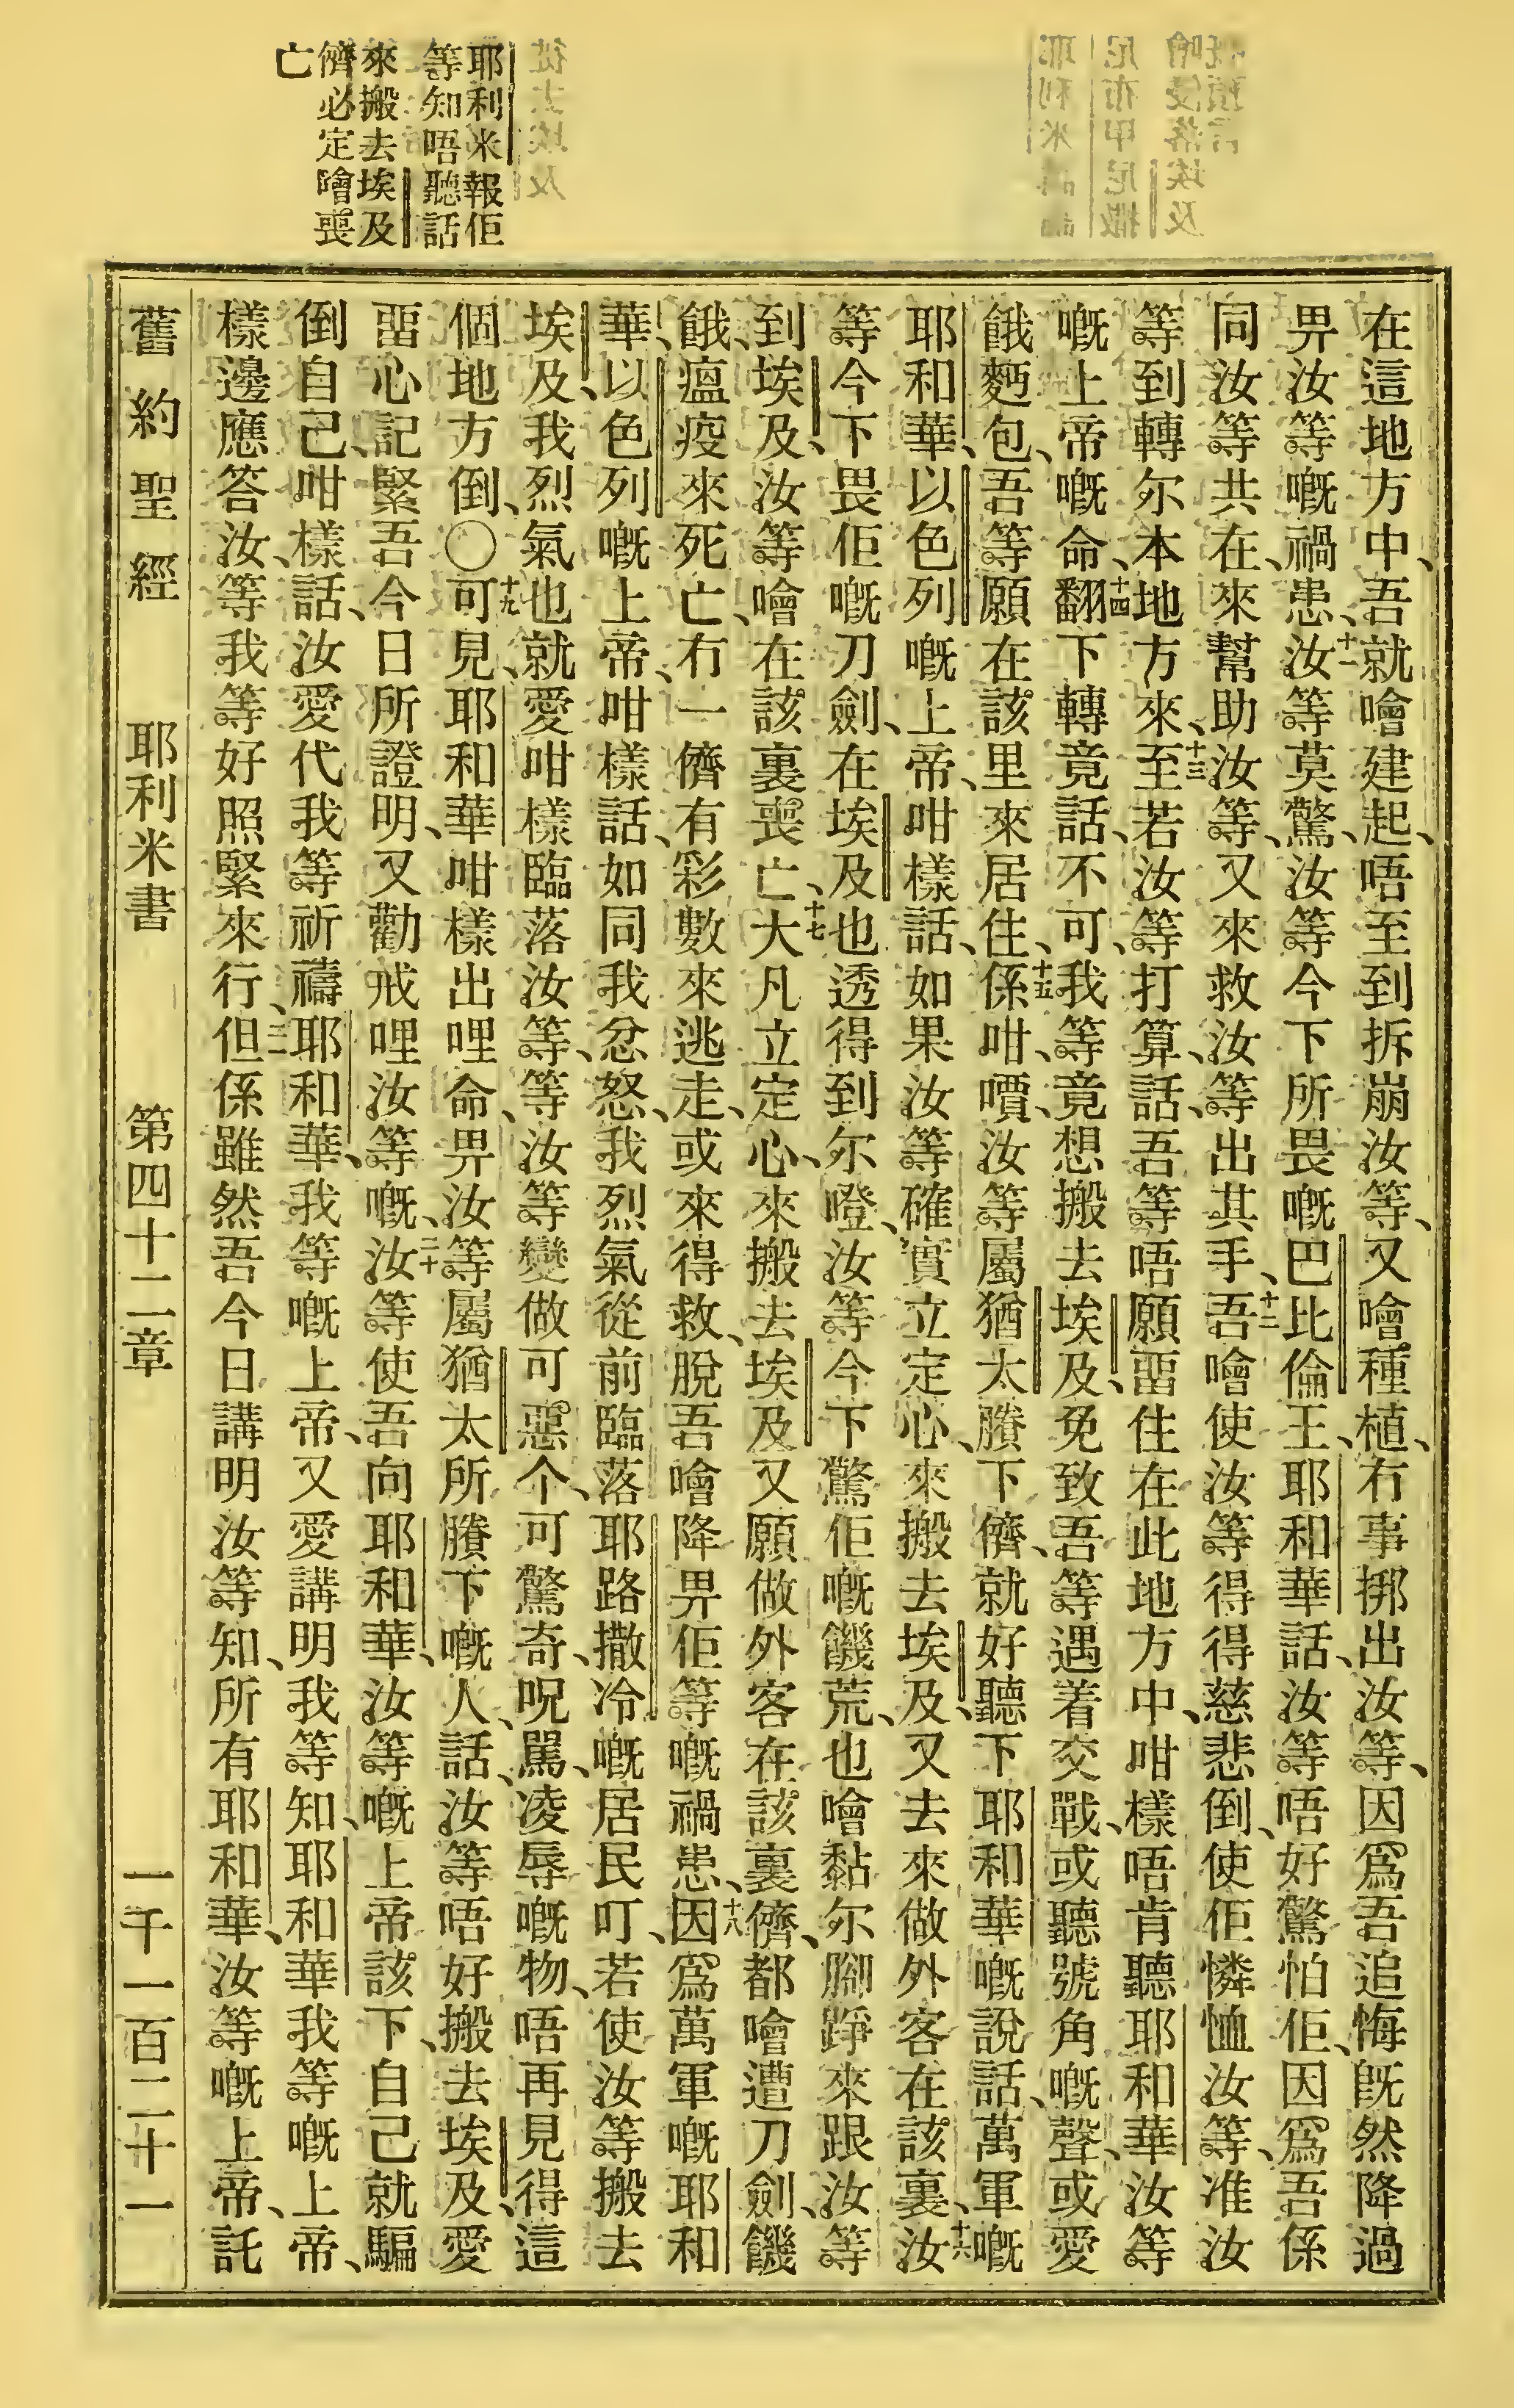 耶利米報佢
等知唔聽話
來搬去埃及
儕必定噲喪
亡
在這地方中、吾就噲建起、唔至到拆崩汝等、又噲種植、冇事挷出汝等、因爲吾追悔既然降過
畀汝等嘅禍患、十一汝等莫驚、汝等今下所畏嘅巴比倫王、耶和華話、汝等唔好驚怕佢、因爲吾係
同汝等共在、來幫助汝等、又來救汝等出其手、十二吾噲使汝等得得慈悲倒、使佢憐恤汝等、准汝
等到轉尔本地方來、十三至若汝等打算話、吾等唔願畱住在此地方中、咁樣唔肯聽耶和華汝等
嘅上帝嘅命、十四翻下轉竟話、不可、我等竟想搬去埃及、免致吾等遇着交戰、或聽號角嘅聲、或愛
餓麪包、吾等願在該里來居住、十五係咁、嘳、汝等屬猶太賸下儕、就好聽下耶和華嘅說話、萬軍嘅
耶和華、以色列嘅上帝、咁樣話、如果汝等確實立定心、來搬去埃及、又去來做外客在該裏、十六汝
等今下畏佢嘅刀劍、在埃及也透得到尔、噔、汝等今下驚佢嘅饑荒、也噲黏尔腳踭來跟汝等
到埃及、汝等噲在該裏喪亡、十七大凡立定心、來搬去埃及又願做外客在該裏儕、都噲遭刀劍、饑
餓、瘟疫來死亡、冇一儕有彩數來逃走、或來得救、脫吾噲降畀佢等嘅禍患、十八因爲萬軍嘅耶和
華、以色列嘅上帝、咁樣話、如同我忿怒、我烈氣從前臨落耶路撒冷嘅居民叮、若使汝等搬去
埃及、我烈氣也就愛咁樣臨落汝等、等汝等變做可惡个、可驚奇、呪駡、凌辱嘅物、唔再見得這
個地方倒、〇十九可見、耶和華咁樣出哩命、畀汝等屬猶太所賸下嘅人、話、汝等唔好搬去埃及、愛
畱心記緊吾今日所證明、又勸戒哩汝等嘅、二十汝等使吾向耶和華、汝等嘅上帝該下、自己就騙
倒自己、咁樣話、汝愛代我等祈禱耶和華、我等嘅上帝、又愛講明我等知、耶和華我等嘅上帝、
樣邊應答汝、等我等好照緊來行、二一但係雖然吾今日講明汝等知、所有耶和華、汝等嘅上帝、託
舊約聖經 耶利米書 第四十二章 一千一百二十一